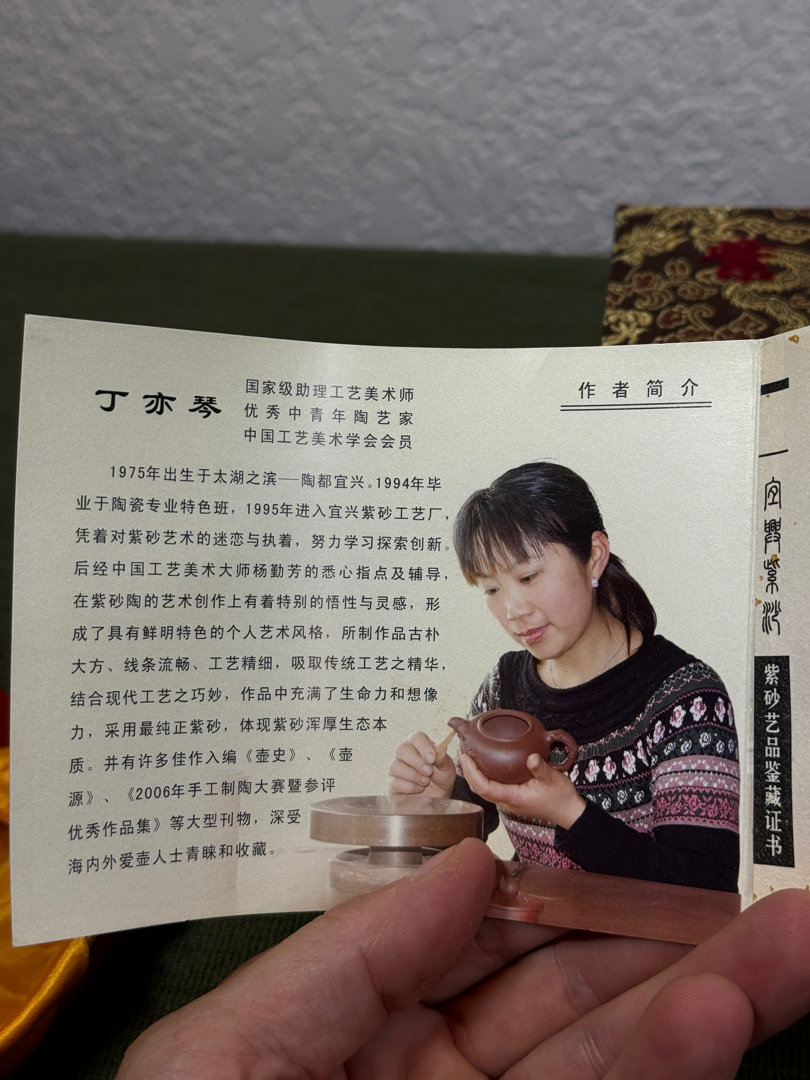 作者简介
丁亦琴
国家级助理工艺美术师
优秀中青年陶艺家
中国工艺美术学会会员
1975年出生于太湖之滨——陶都宜兴。1994年毕
业于陶瓷专业特色班，1995年进入宜兴紫砂工艺厂，
凭着对紫砂艺术的迷恋与执着，努力学习探索创新。
后经中国工艺美术大师杨勤芳的悉心指点及辅导，
在紫砂陶的艺术创作上有着特别的悟性与灵感，形
成了具有鲜明特色的个人艺术风格，所制作品古朴
大方、线条流畅、工艺精细，吸取传统工艺之精华，
结合现代工艺之巧妙，作品中充满了生命力和想像
力，采用最纯正紫砂，体现紫砂浑厚生态本
质。并有许多佳作入编《壶史》、《壶
源》、《2006年手工制陶大赛暨参评
优秀作品集》等大型刊物，深受
海内外爱壶人士青睐和收藏。
宜興紫沙
紫砂艺品鉴藏证书